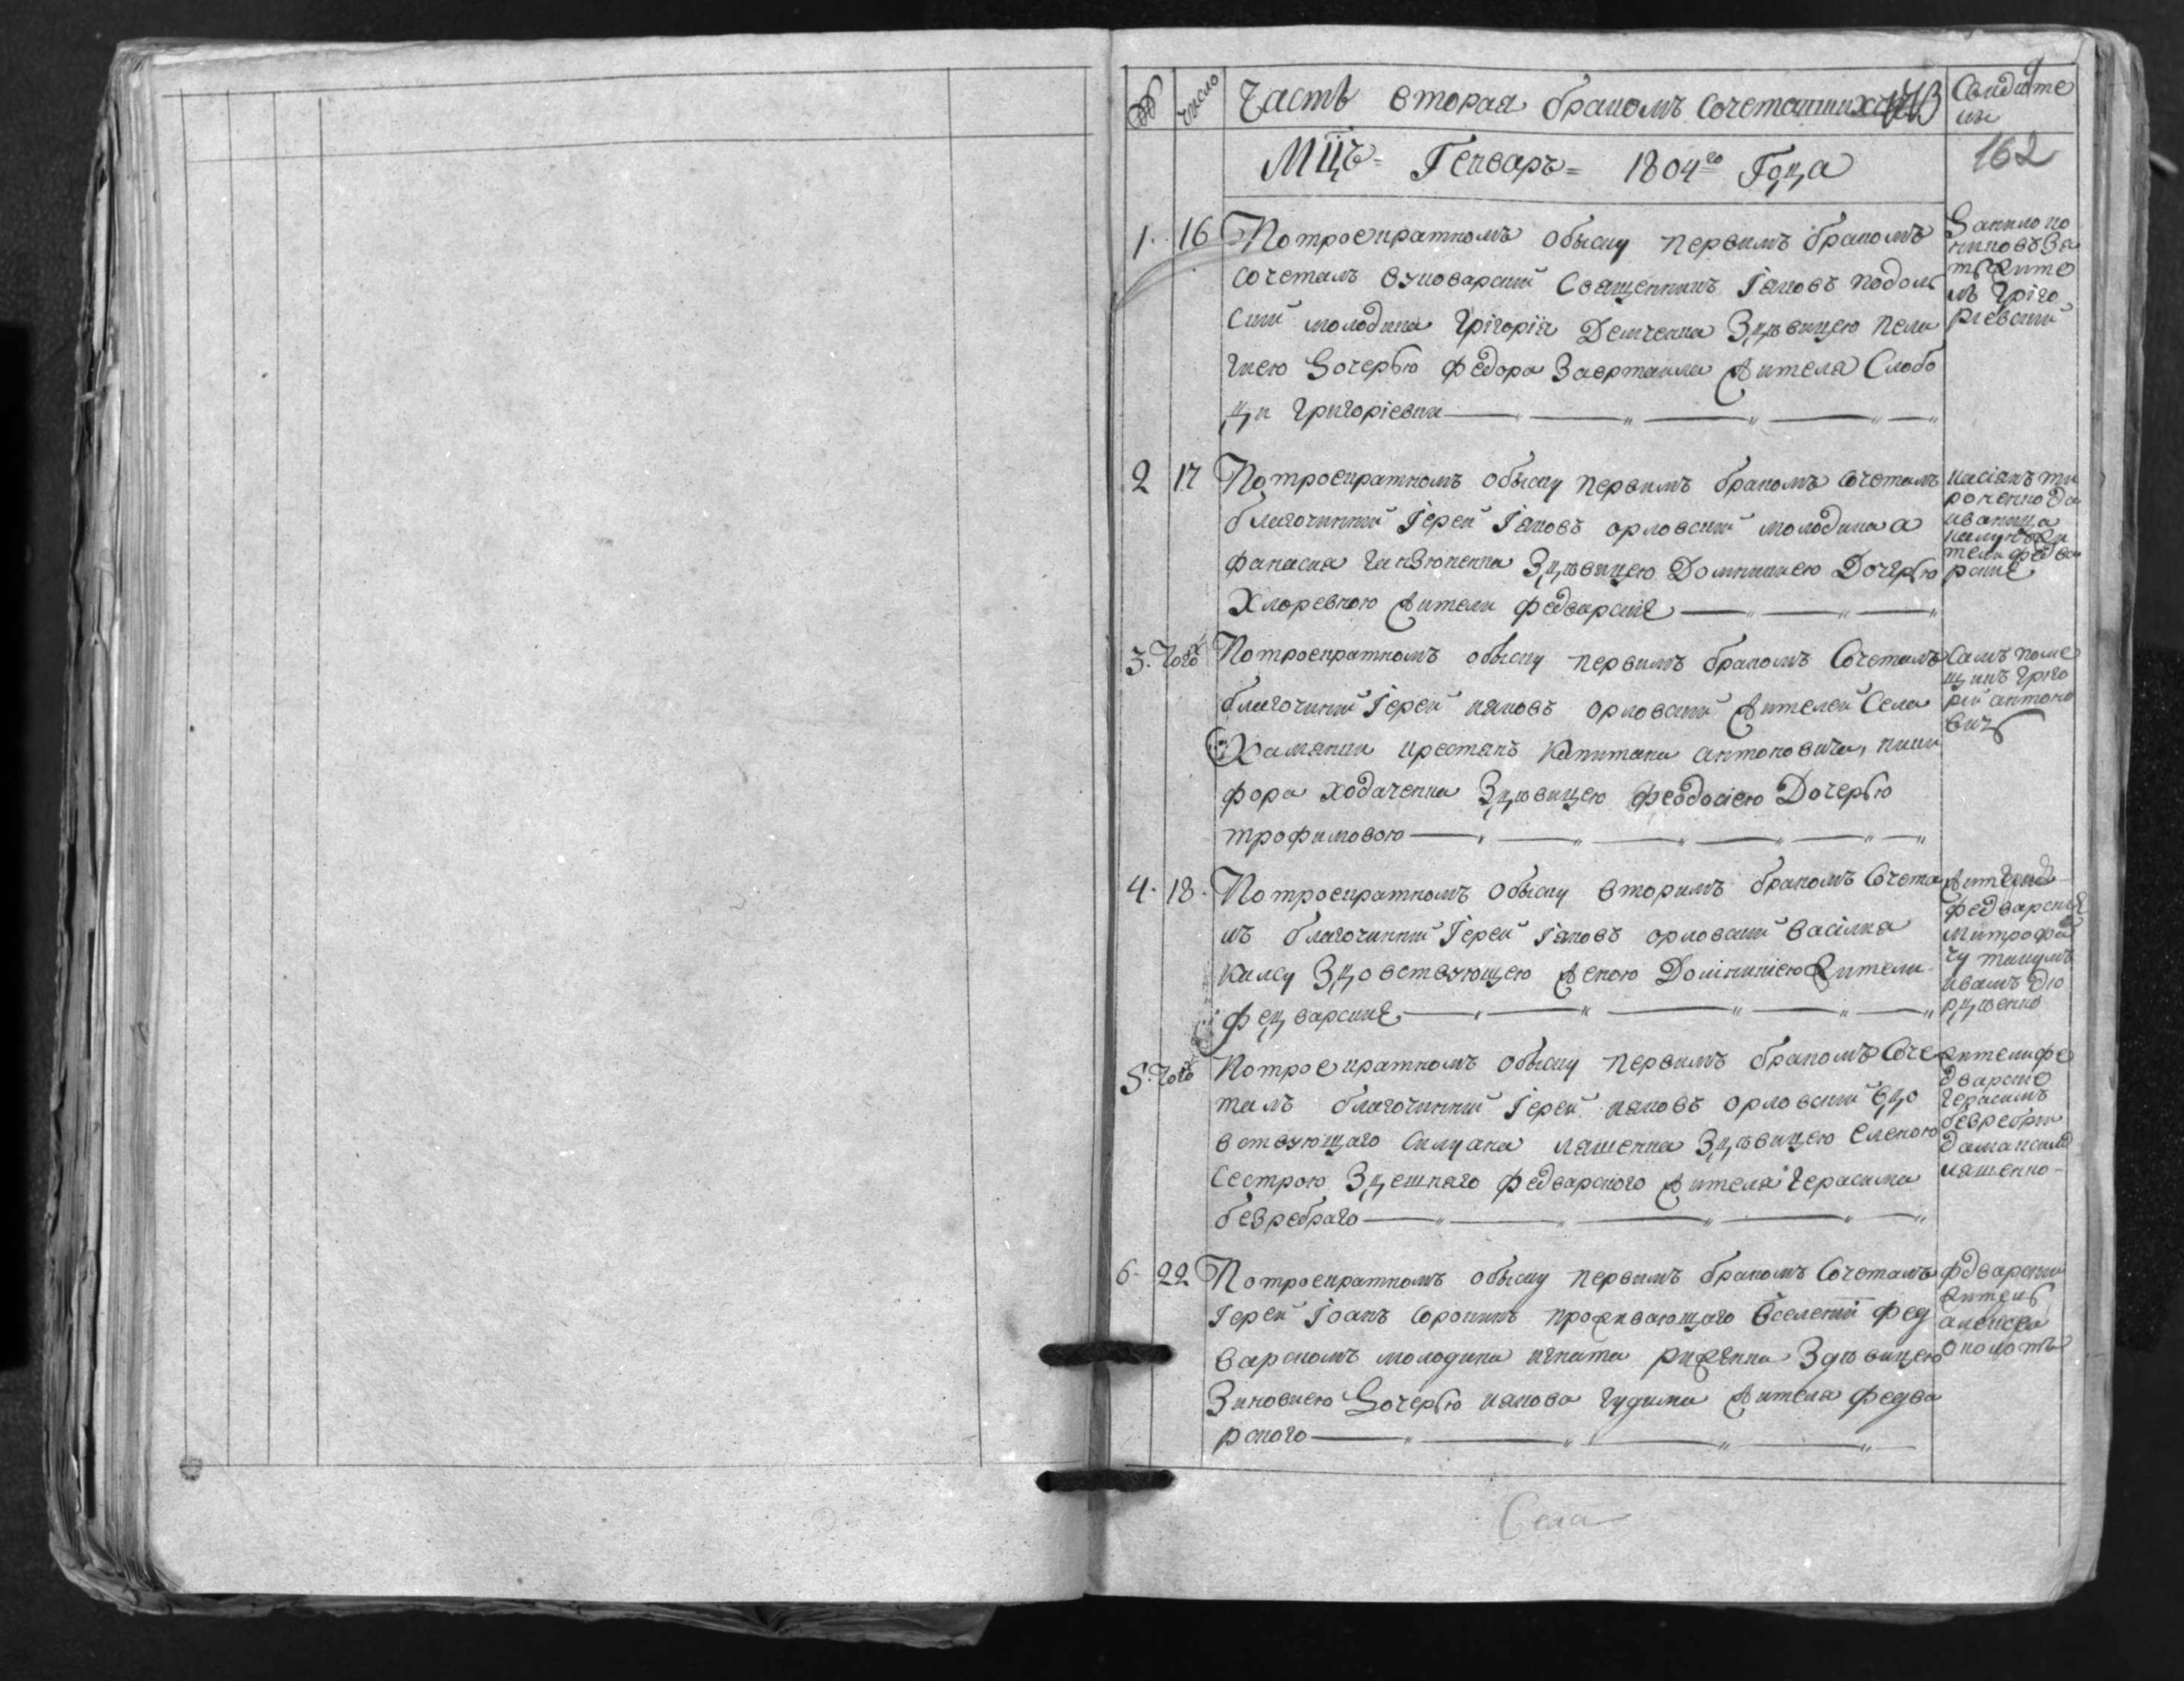 число
Часть вторая бракомъ сочетаншихъся
Свидѣте
ли
Мц̃ъ= Генваръ= 1804го Года
162
1. 16 Потроекратномъ обыску первимъ бракомъ
сочеталъ вуховарский Священникъ Іяковъ подоль
ский молодика Грігорія Демченка Здѣвицею пела
гиею Дочерью Федора Завертаила жителя Слобо
ди Григоріевки
Данило по
житель Гріго
риевский
2 17 Потроекратномъ обыску первимъ бракомъ сочеталъ
благочинний Іерей Іяковъ орловский молодика а
фанасия Ганзюченка Здѣвицею Домникиею Дочерью
Хлоревною жители федварские
касіянъ ти
роченко да
иваница
жи
тели федва
рские
3. Того Потроекратномъ обыску первимъ бракомъ Сочеталъ
благочиний Іерей ияковъ орловский жителей Села
Хамянки крестянъ Капитана антоновича, ники
фора ходаченка Здѣвицею феодосіею Дочерью
трофимовою
Самъ поме
щикъ Гріго
рій антоно
вичъ
4. 18. Потроекратномъ обыску вторимъ бракомъ Сочета
лъ благочинний Іерей Іяковъ орловский васілия
Калсу Здовствующею женою Домникиею жители
федварские
жители
федварские
Митрофа
иванъ дю
рдѣенко
5. Того Потроекратномъ обыску первимъ бракомъ Соче
талъ благочинний Іерей ияковъ орловский вдо
вствующаго Силуана ляшенка Здѣвицею еленою
Сестрою Здешнаго федварского жителя Герасима
безребраго
жители фе
дварские
Герасимъ
безребри
да максимъ
ляшенко
6. 22 Потроекратномъ обыску первимъ бракомъ Сочеталъ
Іерей Іоанъ Сорокинъ проживающаго вселении фед
варскомъ молодика игната риженка Здѣвицею
Зиновиею Дочерью иякова Гудими жителя федва
рского
фдварски
житель
алексеи
Села